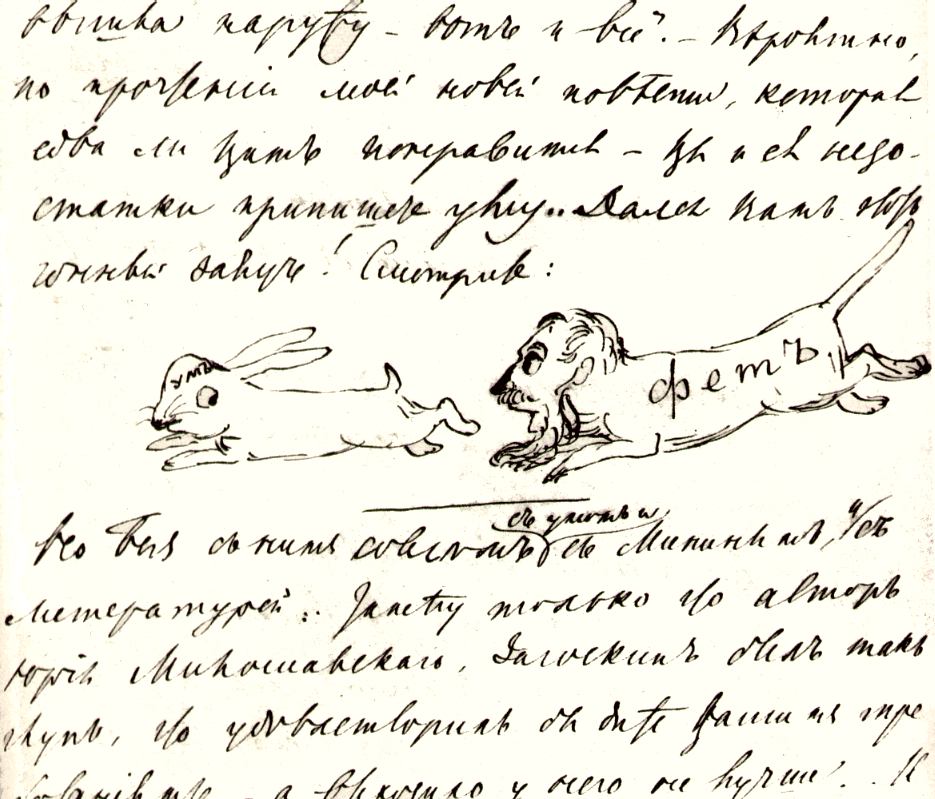 наружу – вотъ и всё". – Вѣроятно,
по прочтеніи моей новой повѣсти, которая
едва ли Вамъ понравится – Вы и ея недо-
статки припишете уму... Дался Вамъ этотъ
гонный заяцъ! Смотрите:
умъ
фетъ
съ умомъ и
Но Богъ съ нимъ совсѣмъ съ Мининымъ, и съ
литературой. Замѣчу только что авторъ
Юрія Милославскаго, Загоскинъ былъ такъ
глупъ, что удовлетворилъ бы даже Вашимъ тре
а вышло у него не лучше!..